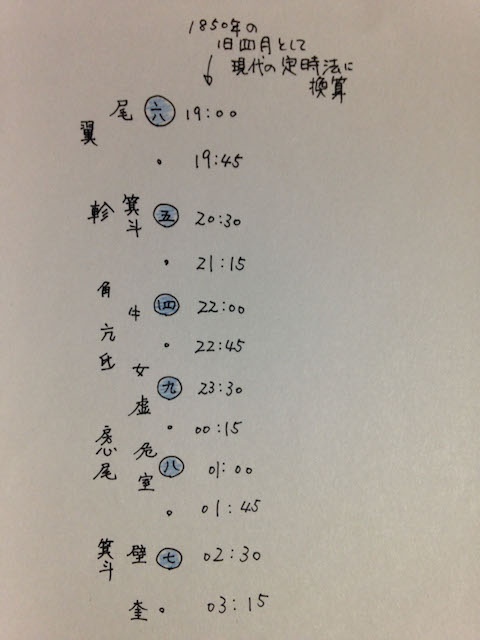 1850年の
旧四月として
現代の定時法に
換算
尾 六 19:00
翼
• 19:45
軫 箕斗 五 20:30
• 21:15
角 牛 四 22:00
亢 • 22:45
氐 女 九 23:30
虚 • 00:15
房心 危 八 01:00
尾 室 • 01:45
箕斗 壁 七 02:30
奎 • 03:15